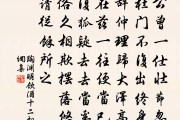 公曾一仕壯節忽
杜門不復出終身
辭仲理歸大澤高
茲一往便當已
復狐疑去去當奚
俗久相欺擺落
請從餘所之
陶淵明飲酒十二
網集